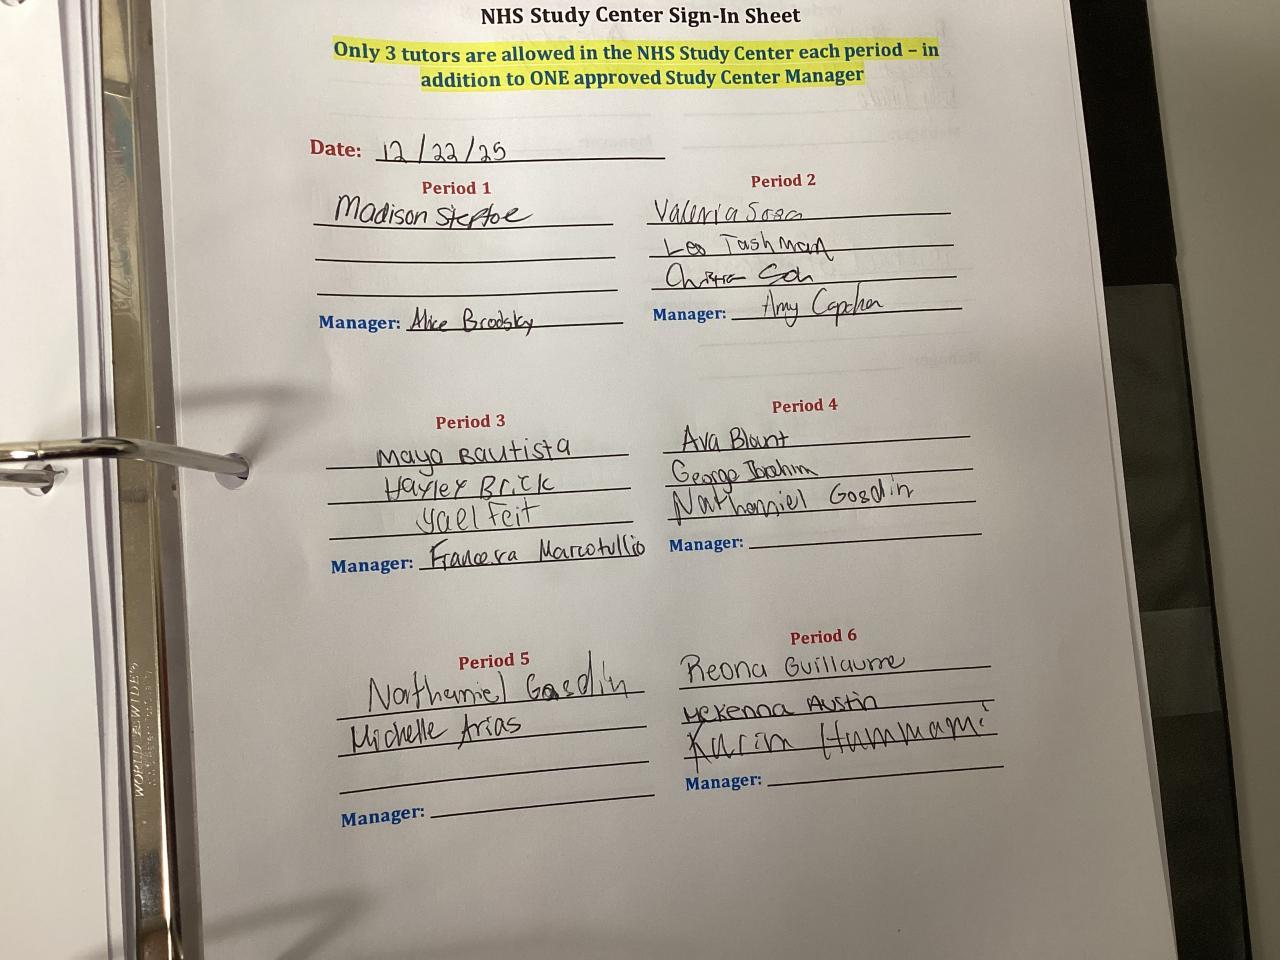 NHS Study Center Sign-In Sheet
Only 3 tutors are allowed in the NHS Study Center each period – in
addition to ONE approved Study Center Manager
Date: 12/22/25
Period 1
Madison Steptoe
Manager: Alice Brodsky
Period 2
Valeria Sosa
Leo Tashman
Manager: Amy Capcha
Period 3
Maya Bautista
Hayley Brick
Yael Feit
Manager: Francesca Marcotullio
Period 4
Ava Blunt
George Ibrahim
Nathaniel Gosdin
Manager:
Period 5
Nathaniel Gosdin
Michelle Arias
Manager:
Period 6
Reona Guillaume
McKenna Austin
Karim Hummami
Manager:
WORLD WIDE